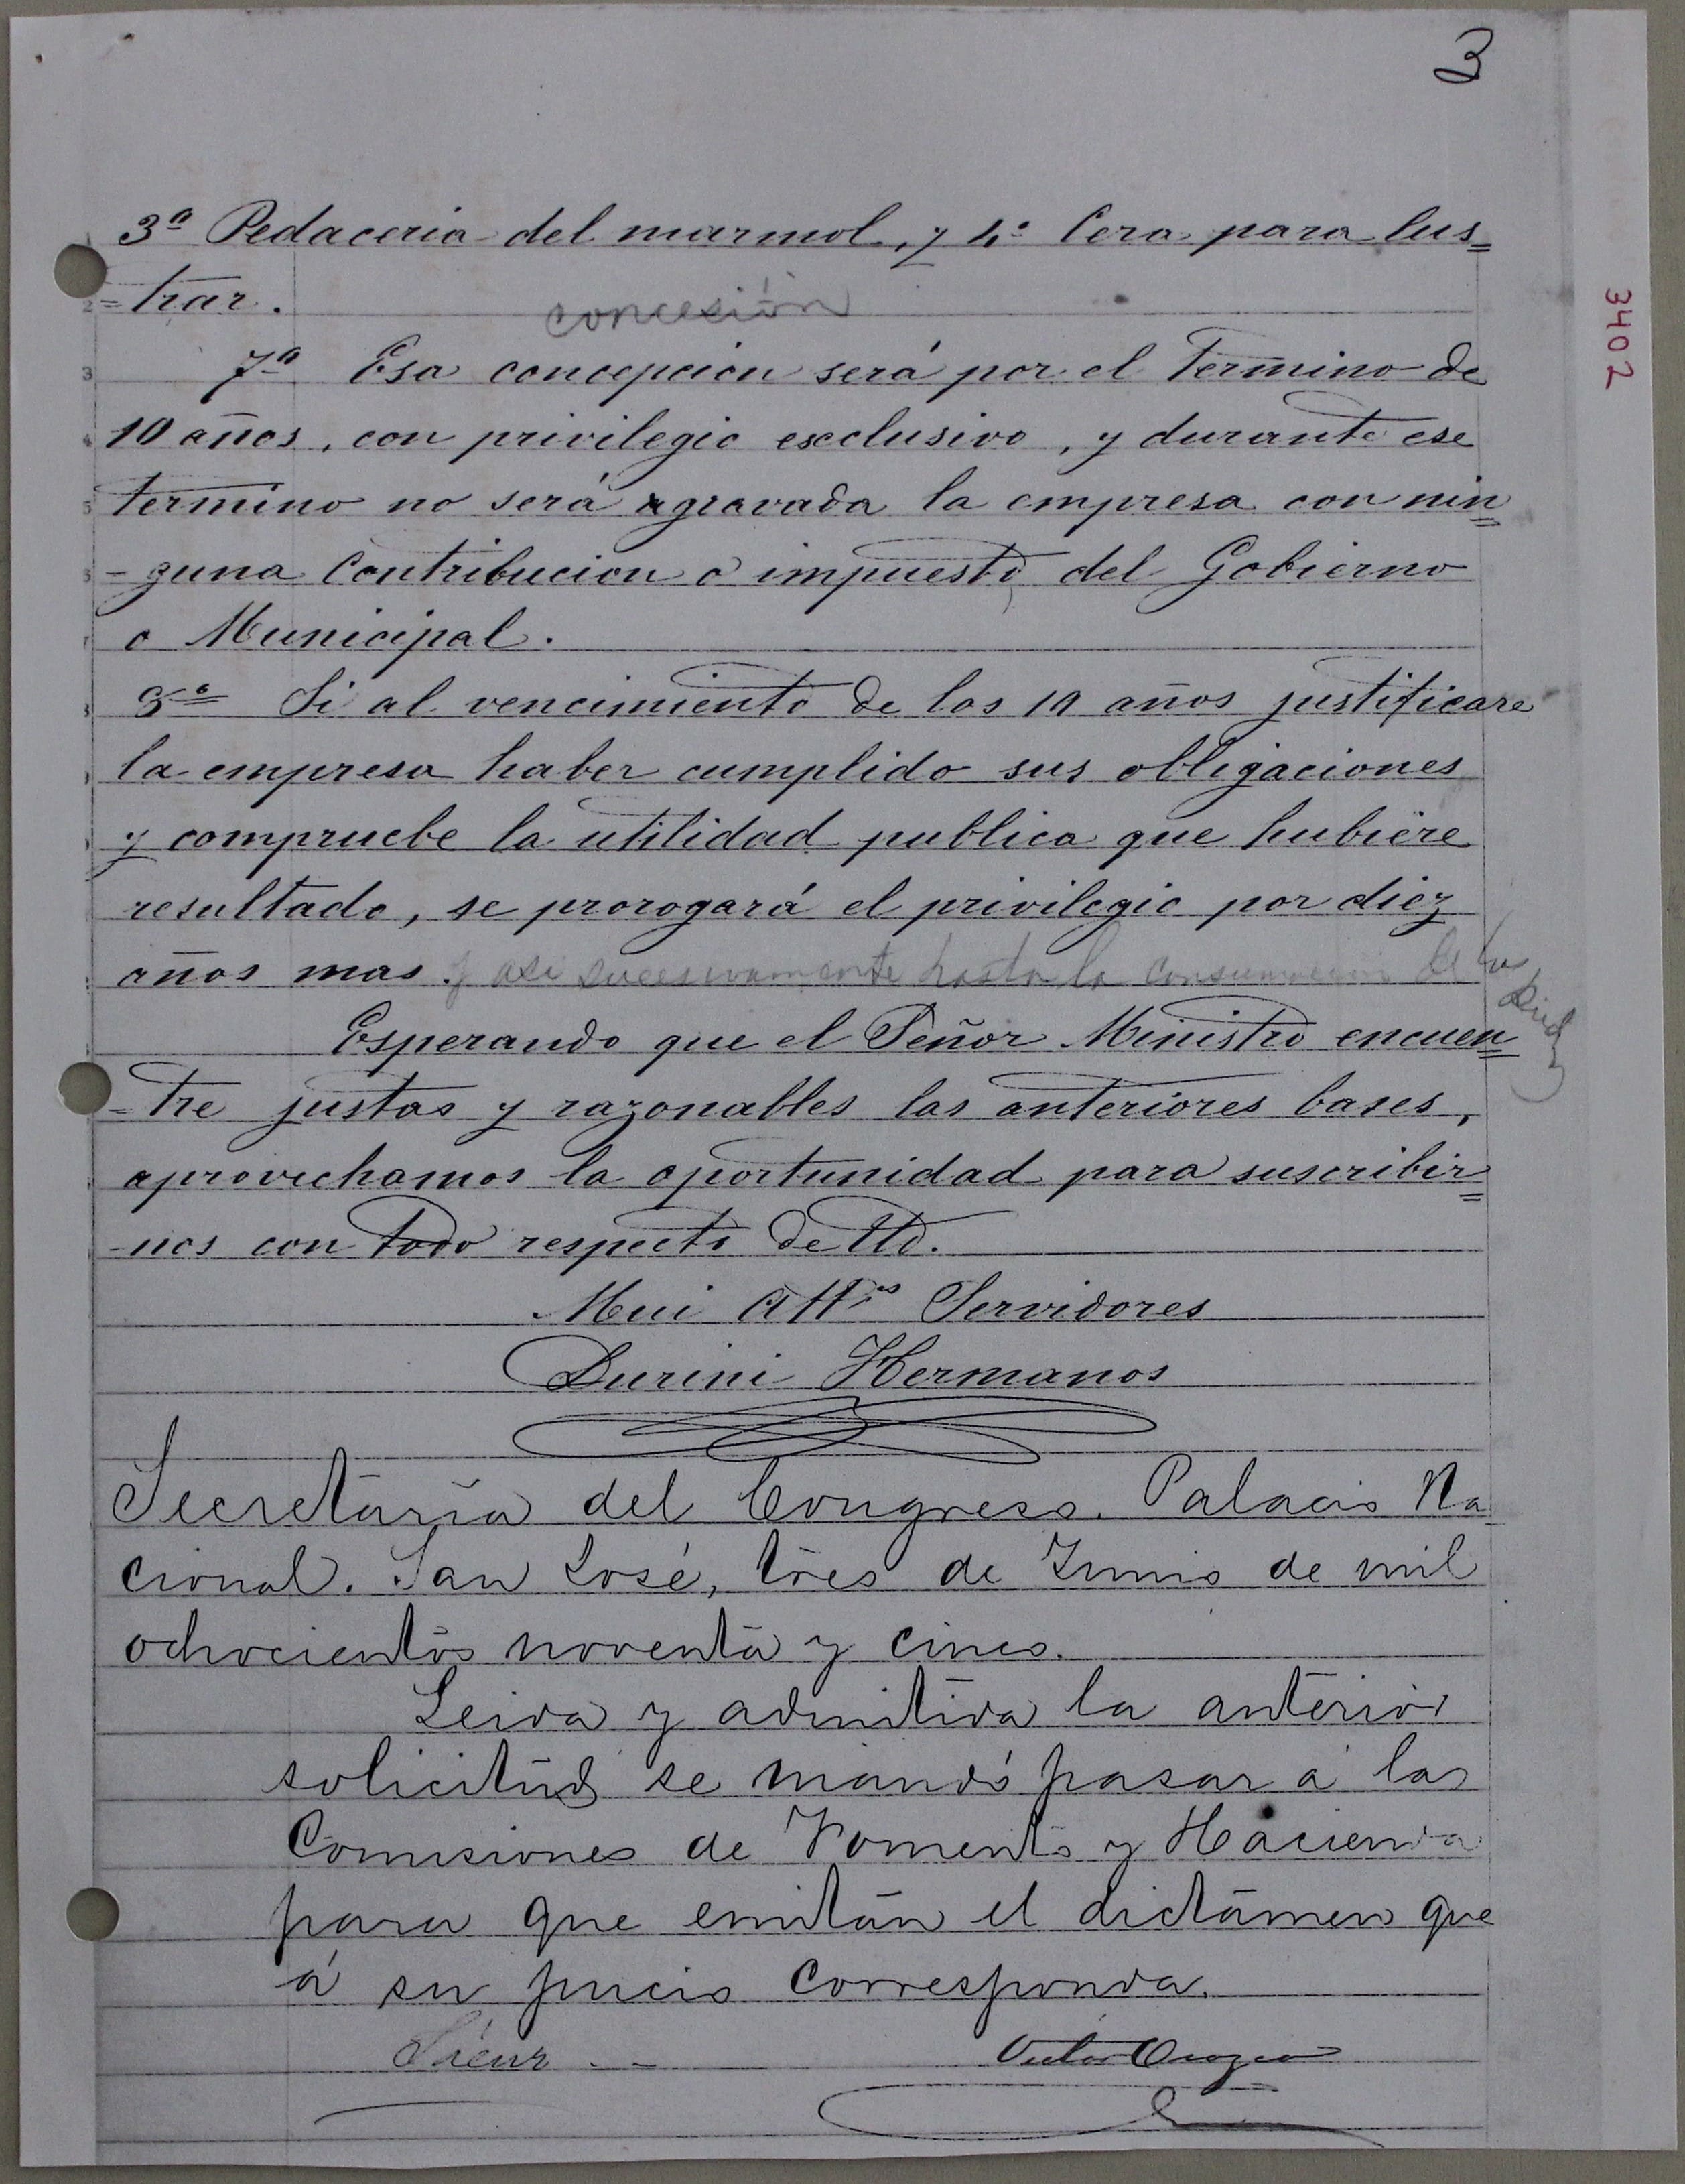 3
3402
3ª Pedaceria del marmol, y 4ª Cera para lus=
=trar.
concesión
7ª Esa concepción será por el termino de
10 años, con privilegio esclusivo, y durante ese
termino no será agravada la empresa con nin=
-guna Contribucion o impuesto del Gobierno
o Municipal.
8ª Si al vencimiento de los 10 años justificare
la empresa haber cumplido sus obligaciones
y compruebe la utilidad publica que hubiere
resultado, se prorogará el privilegio por diez
años mas. y asi sucesivamente hasta la consumación de los
Esperando que el Señor Ministro encuen=
=tre justas y razonables las anteriores bases,
aprovechamos la oportunidad para suscribir=
-nos con todo respecto de Ud.
Mui Attos Servidores
Durini Hermanos
Secretaría del Congreso. Palacio Na
cional. San José, tres de Junio de mil
ochocientos noventa y cinco.
Leida y admitida la anterior
solicitud se mandó pasar á las
Comisiones de Fomento y Hacienda
para que emitan el dictámen que
á su juicio corresponda.
Victor Orozco